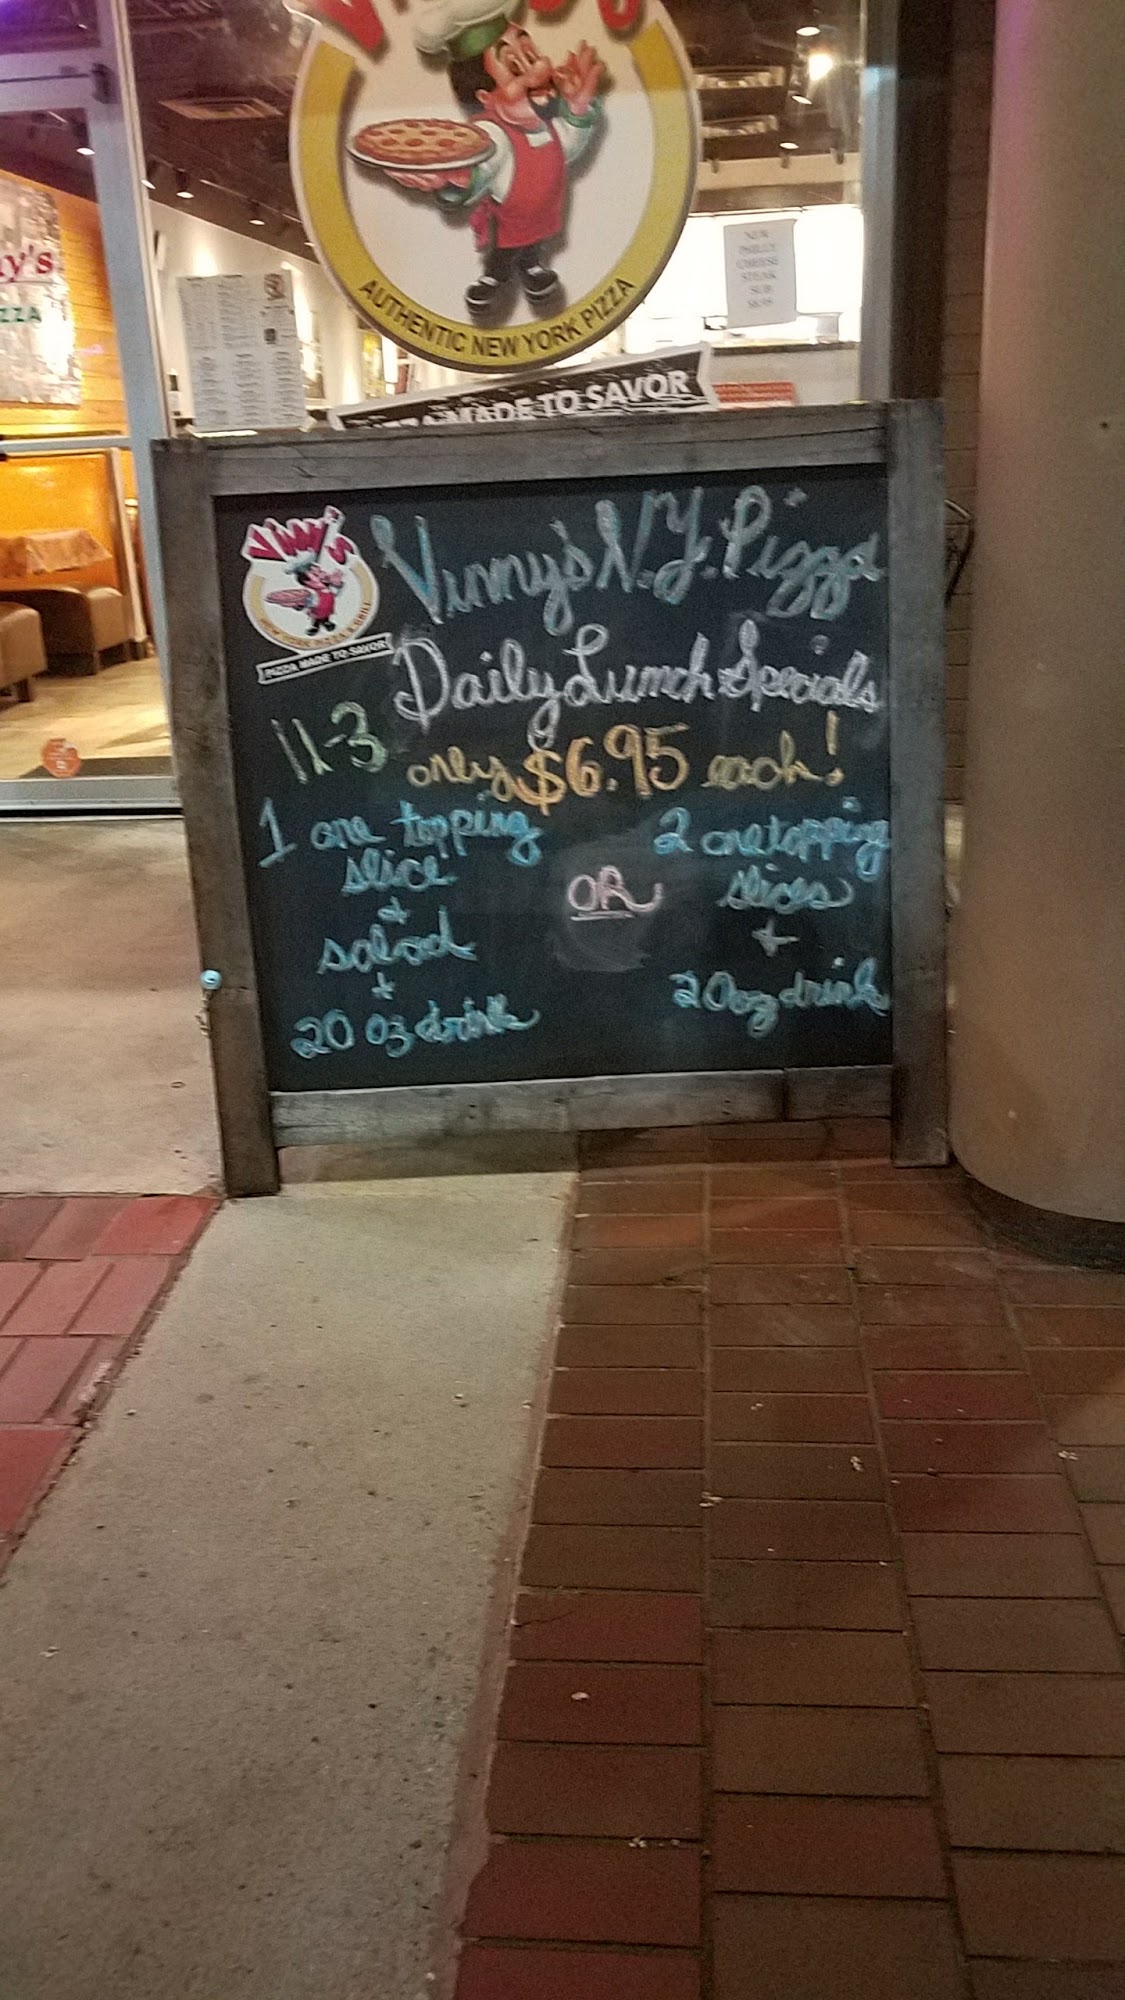 AUTHENTIC NEW YORK PIZZA
MADE TO SAVOR
NEW
PHILLY
CHEESE
STEAK
SUB
Vinny's
NEW YORK PIZZA & GRILL
PIZZA MADE TO SAVOR
Vinny's N.Y. Pizza
Daily Lunch Specials
11-3 only $6.95 each!
1 one topping
slice
+
salad
+
20 oz drink
OR
2 one topping
slices
+
20oz drink